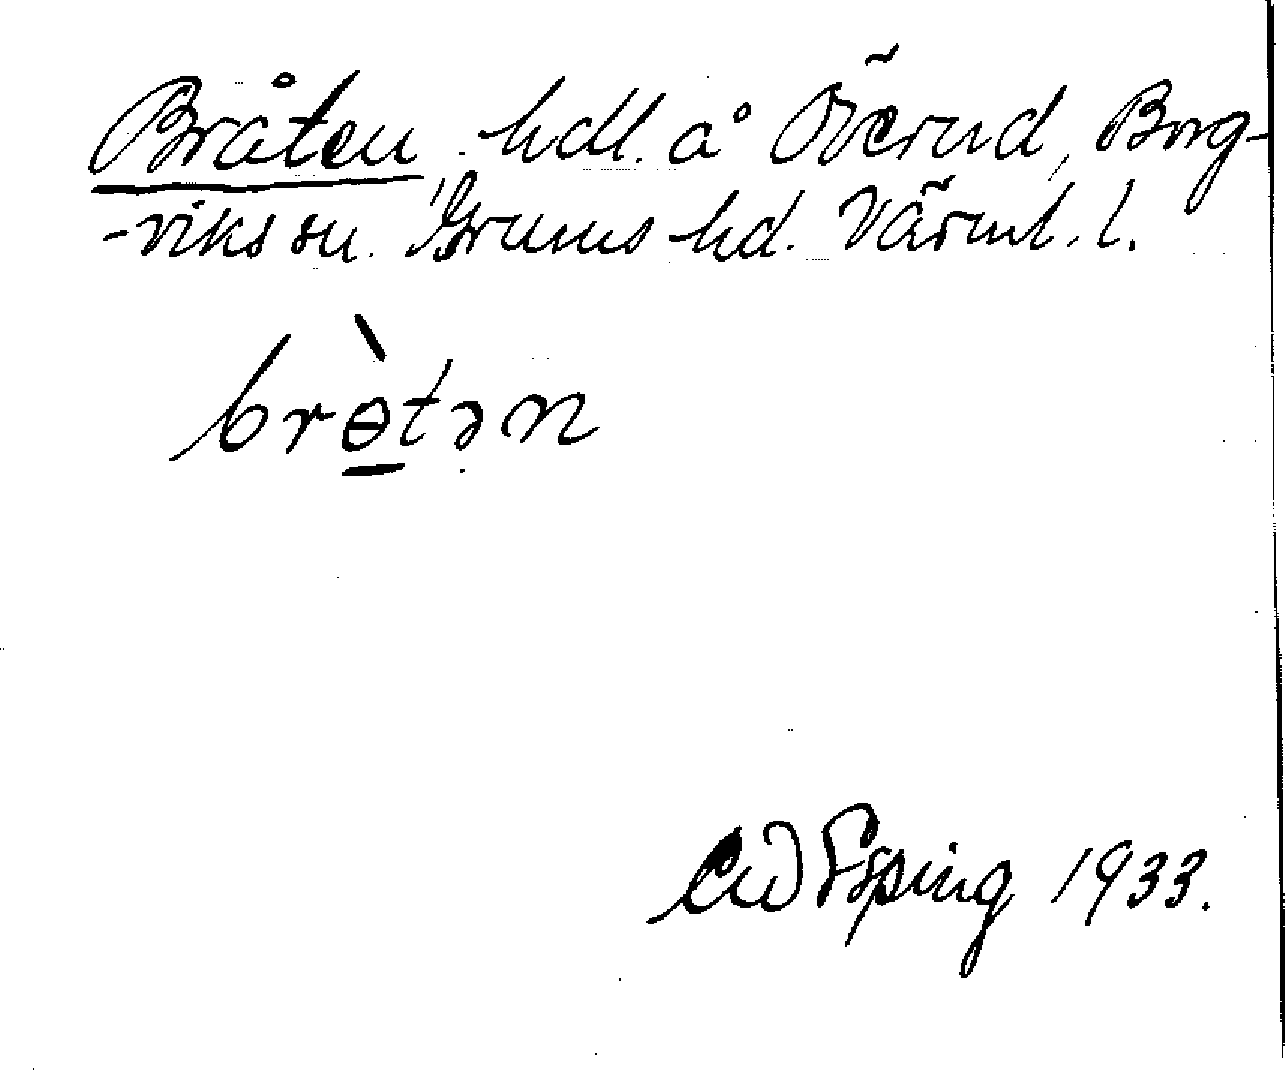 Bråten hdl. å Överud, Borg-
-viks sn. Grums hd. Värml. l.
brɵ̀tən
Esping 1933.